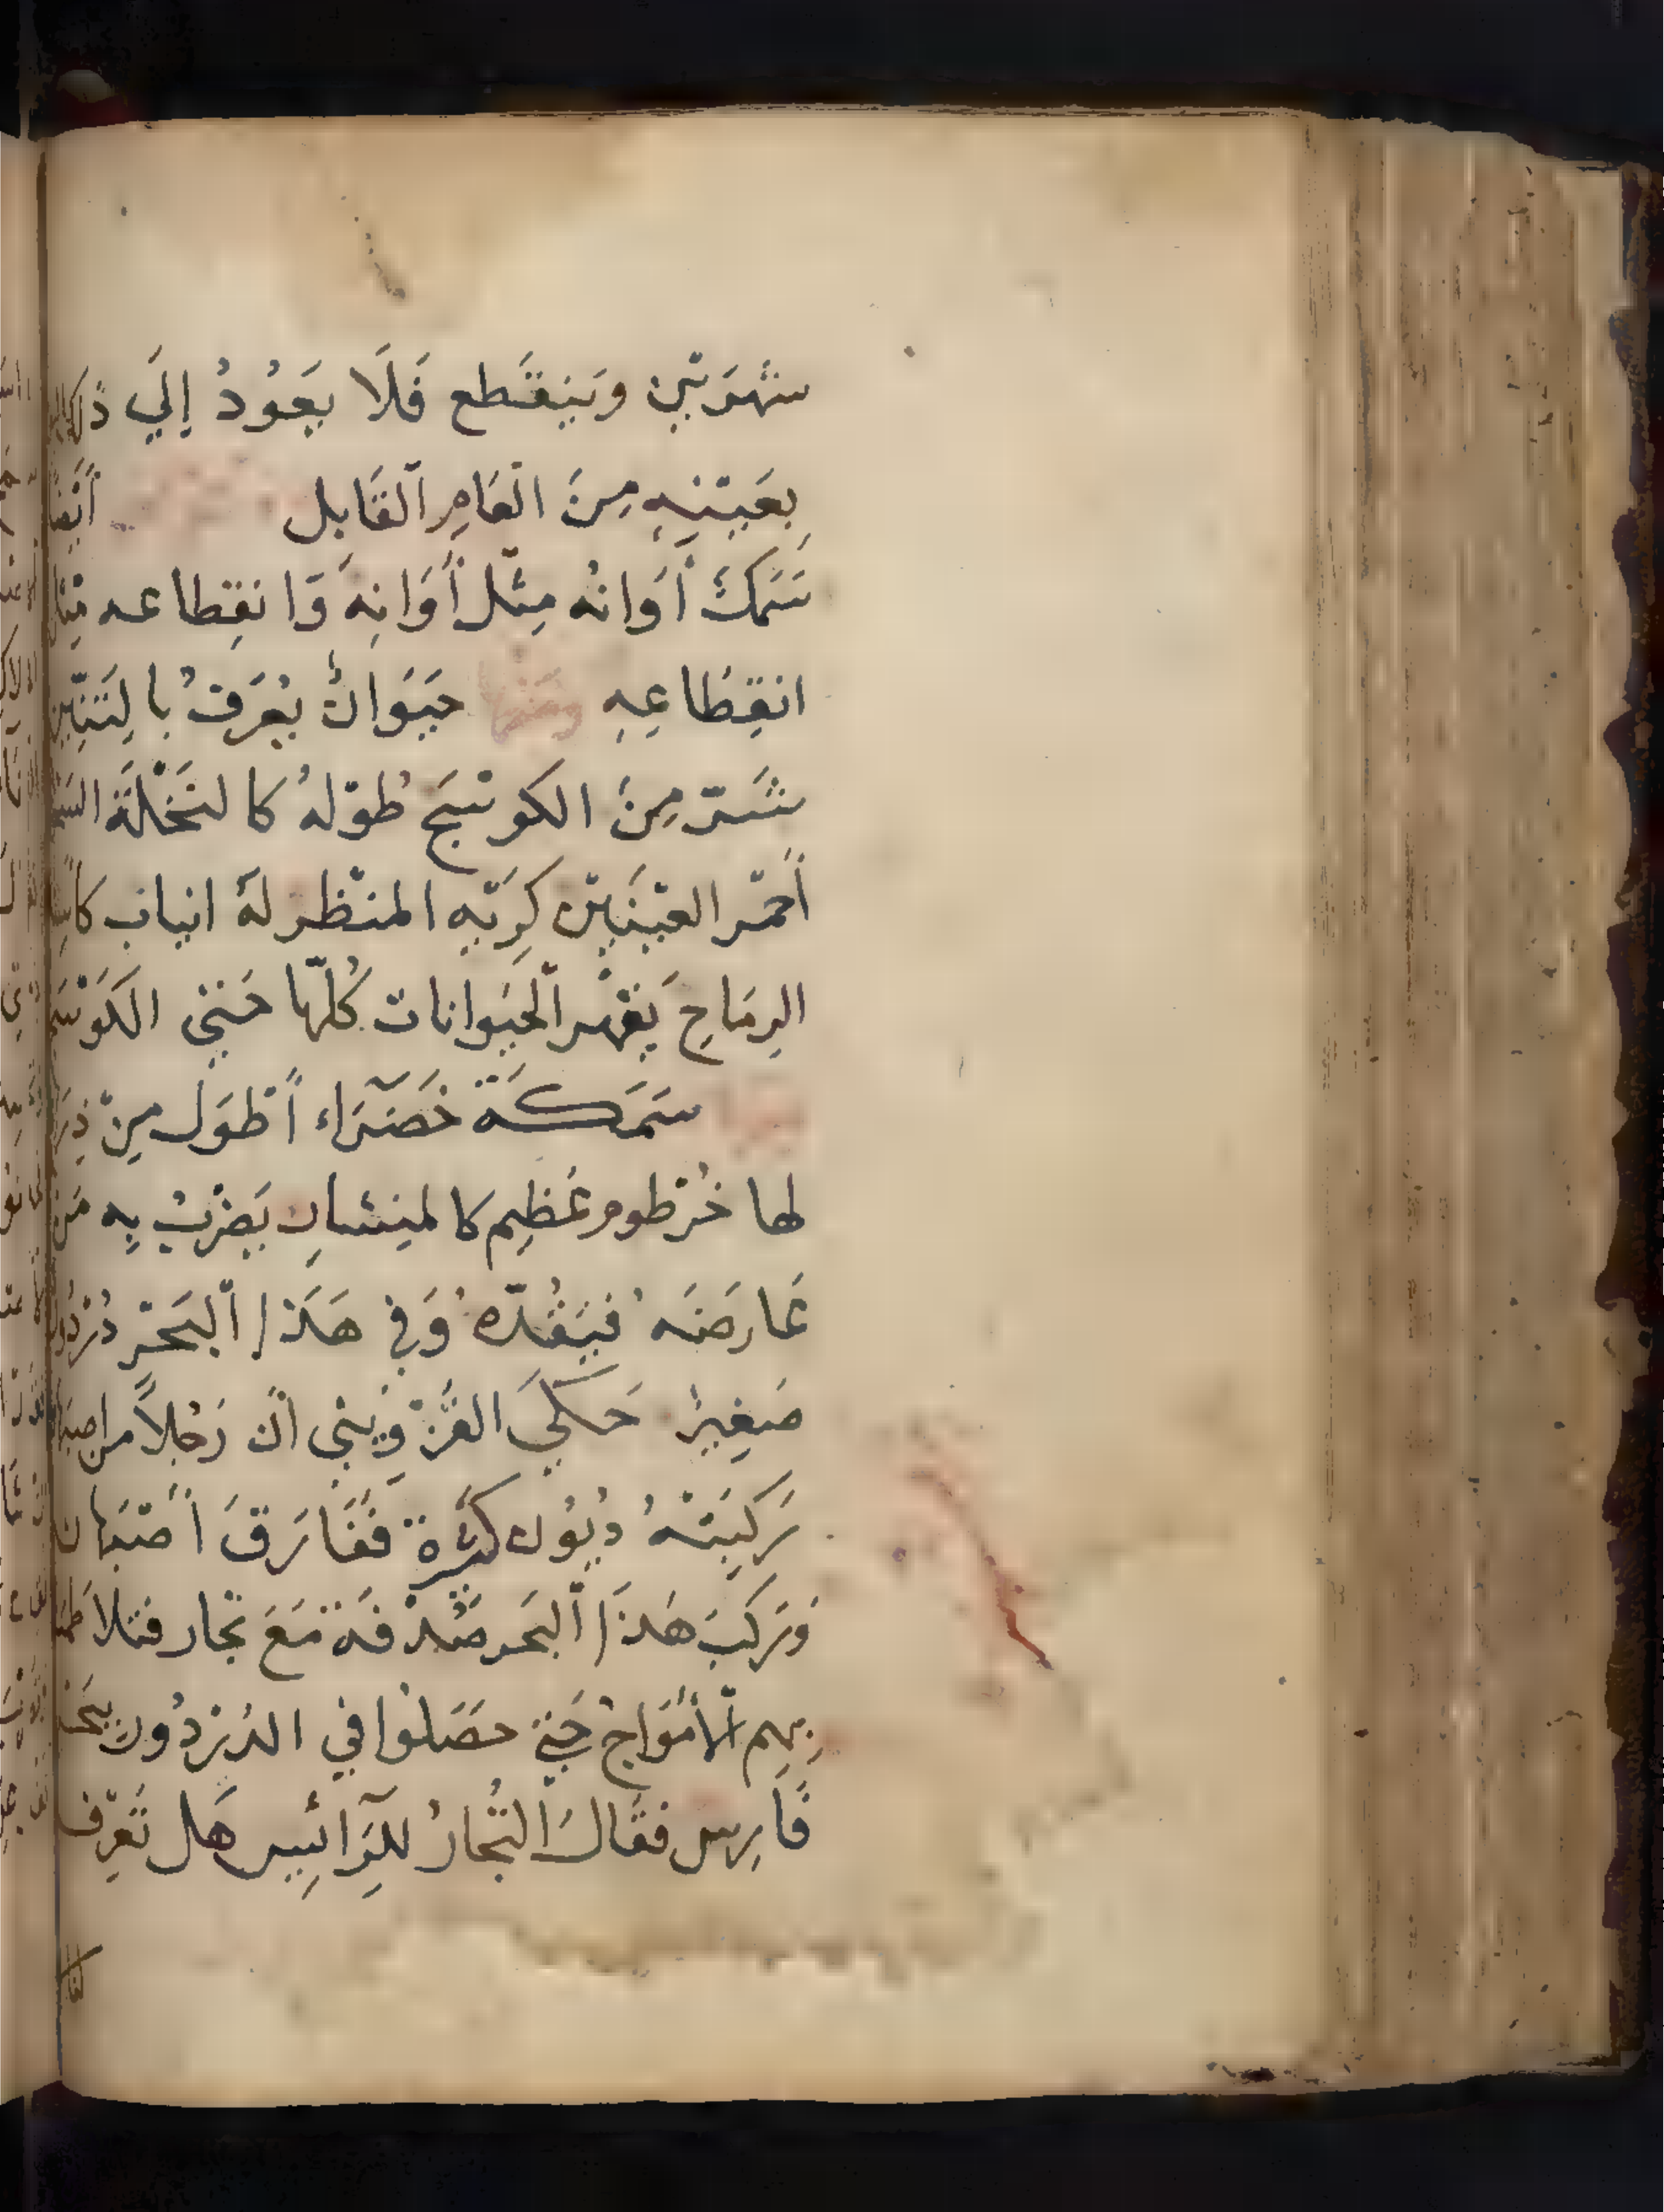 شَهْرَيْنِ وَيَنْقَطع فَلَا يَعُوْدُ إِلَي ذَلِكَ
بِعَيْنِهِ مِنَ الْعَامِ الْقَابل أَيْضًا
سَمَكٌ أَوَانُه مِثْل أَوَانِهِ وَانقِطاعه مِثل
انقِطَاعِهِ ومنها حَيَوَانٌ يُعْرَفُ بالتِنِّينِ
شَرّ مِنَ الكوسَج طُوْلهُ كالنَخْلَة السحوق
أَحْمَر العَيْنَيْن كَرِيْهِ المنْظر لَهُ انياب كأسنة
الرِمَاحِ يَقْهَر الْحَيَوانات كُلّهَا حَتي الكَوْسَج
سَمَكَة خَضْرَاء أَطْوَل مِنْ ذِرَاع
لها خُرْطوم عَظِيم كالمِنشارِ يَضْرِبُ بِهِ مَن
عَارضَهُ فيَقُدّهُ وَفِي هَذَا الْبَحْر دُرْدُور
صَغِيرُ حَكَيَ القَزْوِيني انّ رَجُلاً من اصبهان
رَكِبَتْهُ دُيُوْن كثيرة فَفَارَقَ أَصْبَهان
وَرَكِبَ هَذَا الْبَحر صُدْفَة مَعَ تجار فتلاطمت
بِهِم الْأَمْوَاجُ حَتي حَصَلوْا فِي الدُرْدُور بِبَحْر
فَارِس فقَالَ التُجّارُ لِلرَائِيس هَل تَعْرِف
لنا